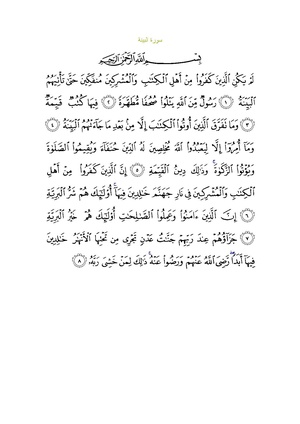 سورة لبينة
بِسْمِ ٱللَّهِ ٱلرَّحْمَٰنِ ٱلرَّحِيمِ
لَمْ يَكُنِ ٱلَّذِينَ كَفَرُوا۟ مِنْ أَهْلِ ٱلْكِتَٰبِ وَٱلْمُشْرِكِينَ مُنفَكِّينَ حَتَّىٰ تَأْتِيَهُمُ
ٱلْبَيِّنَةُ ١ رَسُولٌ مِّنَ ٱللَّهِ يَتْلُوا۟ صُحُفًا مُّطَهَّرَةً ٢ فِيهَا كُتُبٌ قَيِّمَةٌ
٣ وَمَا تَفَرَّقَ ٱلَّذِينَ أُوتُوا۟ ٱلْكِتَٰبَ إِلَّا مِنۢ بَعْدِ مَا جَآءَتْهُمُ ٱلْبَيِّنَةُ ٤
وَمَآ أُمِرُوٓا۟ إِلَّا لِيَعْبُدُوا۟ ٱللَّهَ مُخْلِصِينَ لَهُ ٱلدِّينَ حُنَفَآءَ وَيُقِيمُوا۟ ٱلصَّلَوٰةَ
وَيُؤْتُوا۟ ٱلزَّكَوٰةَ ۚ وَذَٰلِكَ دِينُ ٱلْقَيِّمَةِ ٥ إِنَّ ٱلَّذِينَ كَفَرُوا۟ مِنْ أَهْلِ
ٱلْكِتَٰبِ وَٱلْمُشْرِكِينَ فِى نَارِ جَهَنَّمَ خَٰلِدِينَ فِيهَآ ۚ أُو۟لَٰٓئِكَ هُمْ شَرُّ ٱلْبَرِيَّةِ
٦ إِنَّ ٱلَّذِينَ ءَامَنُوا۟ وَعَمِلُوا۟ ٱلصَّٰلِحَٰتِ أُو۟لَٰٓئِكَ هُمْ خَيْرُ ٱلْبَرِيَّةِ
٧ جَزَآؤُهُمْ عِندَ رَبِّهِمْ جَنَّٰتُ عَدْنٍ تَجْرِى مِن تَحْتِهَا ٱلْأَنْهَٰرُ خَٰلِدِينَ
فِيهَآ أَبَدًا ۖ رَّضِىَ ٱللَّهُ عَنْهُمْ وَرَضُوا۟ عَنْهُ ۚ ذَٰلِكَ لِمَنْ خَشِىَ رَبَّهُۥ ٨